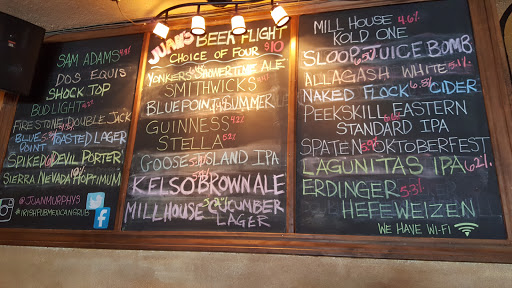 SAM ADAMS
DOS EQUIS
SHOCK TOP
BUD LIGHT
FIRESTONE DOUBLE JACK
BLUE POINT TOASTED LAGER
SPIKED DEVIL PORTER
SIERRA NEVADA HOPTIMUM
@JUANMURPHYS
#IRISHPUBMEXICANGRUB
JUAN'S BEER FLIGHT
CHOICE OF FOUR $10
YONKERS SUMMERTIME ALE
SMITHWICKS
BLUEPOINT SUMMER
GUINNESS
STELLA
GOOSE ISLAND IPA
KELSO BROWN ALE
MILL HOUSE CUCUMBER
LAGER
MILL HOUSE 4.6%
KOLD ONE
SLOOP JUICE BOMB
ALLAGASH WHITE 5.1%
NAKED FLOCK CIDER
PEEKSKILL EASTERN
STANDARD IPA
SPATEN OKTOBERFEST
LAGUNITAS IPA 6.2%
ERDINGER 5.3%
HEFEWEIZEN
WE HAVE WI-FI